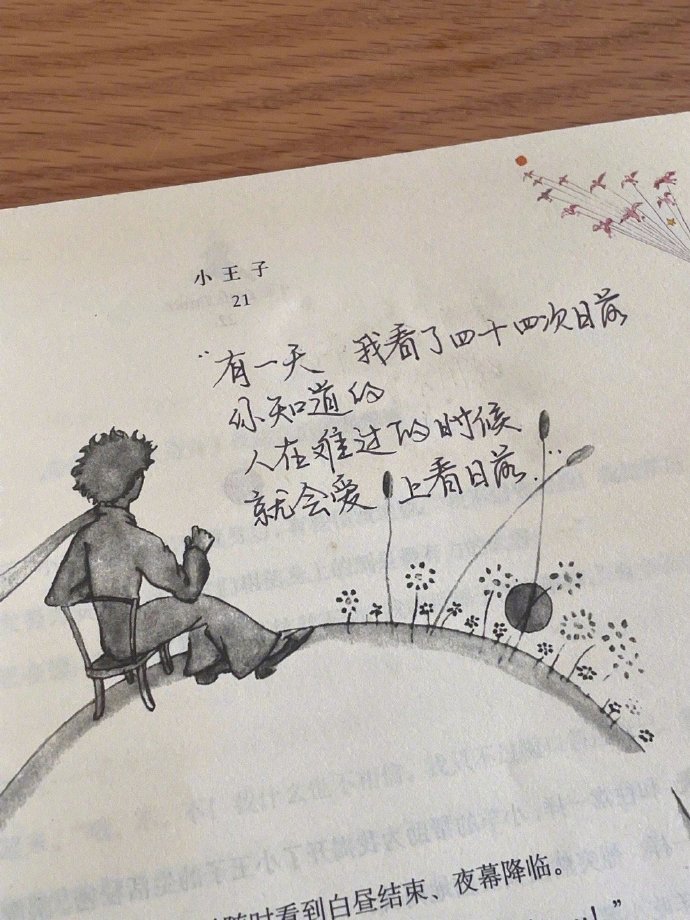 小王子
21
“有一天 我看了四十四次日落
你知道的
人在难过的时候
就会爱上看日落.”
随时看到白昼结束、夜幕降临。